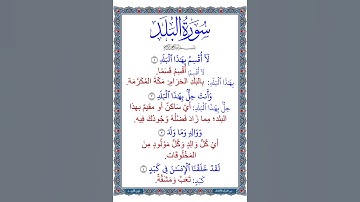 سُورَةُ الْبَلَد
لَآ أُقْسِمُ بِهَٰذَا ٱلْبَلَدِ ١
لَا أُقْسِمُ: أُقْسِمُ قَسَمًا.
بِهَٰذَا ٱلْبَلَدِ: بِالبَلَدِ الحَرَامِ؛ مَكَّةَ المُكَرَّمَةِ.
وَأَنتَ حِلٌّۢ بِهَٰذَا ٱلْبَلَدِ ٢
حِلٌّۢ بِهَٰذَا ٱلْبَلَدِ: أَيْ سَاكِنٌ أَو مُقِيمٌ بِهذَا
البَلَدِ؛ مِمَّا زَادَ فَضْلَهُ وُجُودُكَ فِيهِ.
وَوَالِدٍ وَمَا وَلَدَ ٣
أَيْ كُلِّ وَالِدٍ وَكُلِّ مَوْلُودٍ مِنَ
المَخْلُوقَاتِ.
لَقَدْ خَلَقْنَا ٱلْإِنسَٰنَ فِى كَبَدٍ ٤
كَبَدٍ: تَعَبٍ وَمَشَقَّةٍ.